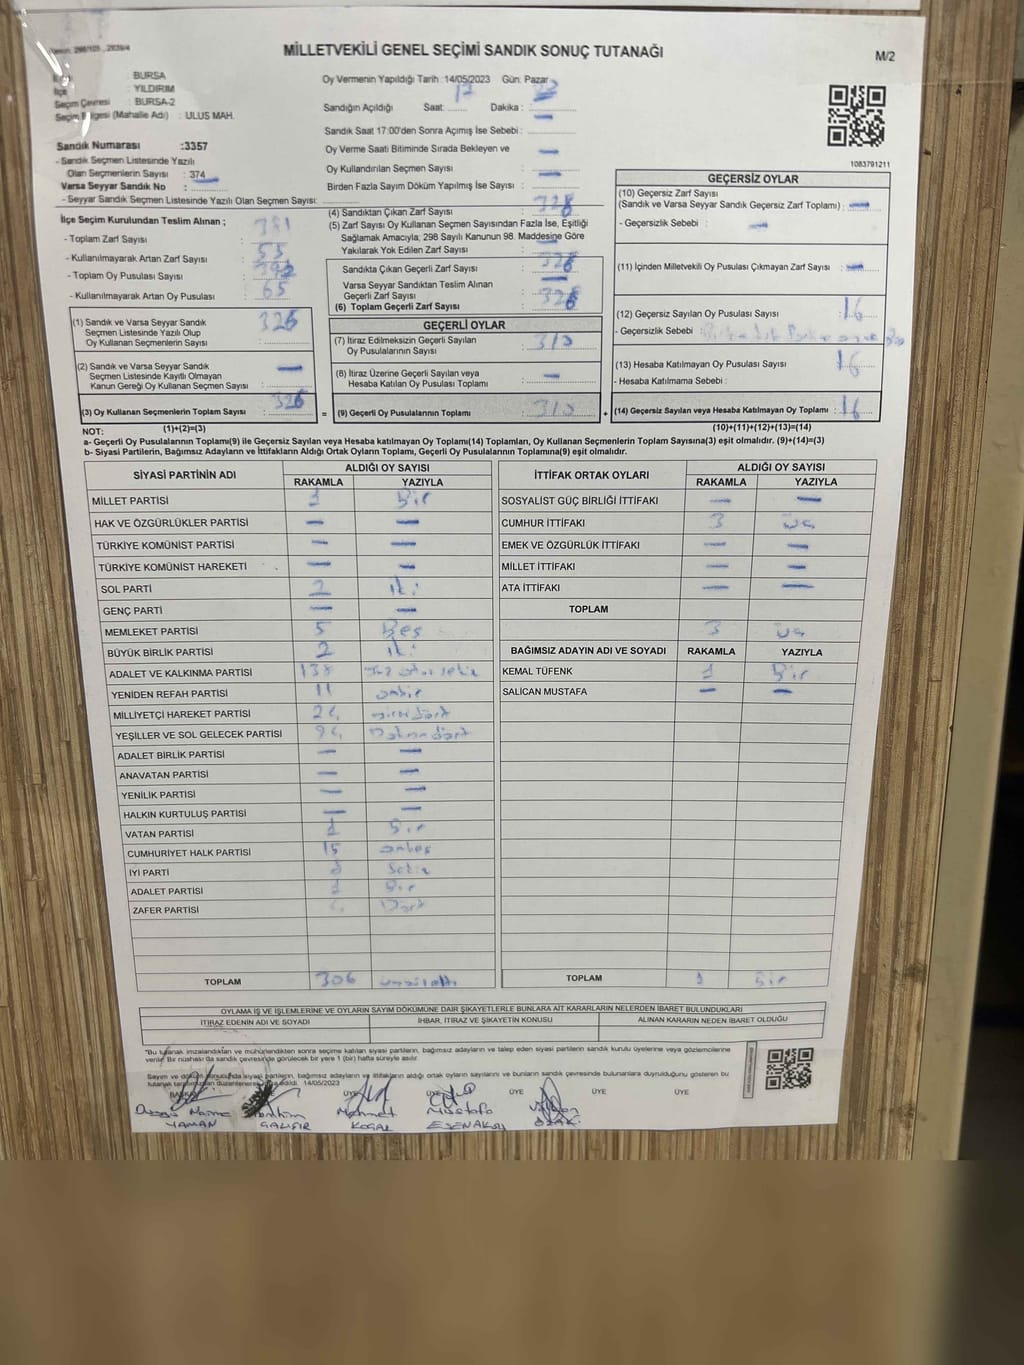 MİLLETVEKİLİ GENEL SEÇİMİ SANDIK SONUÇ TUTANAĞI
M/2
BURSA
İlçe : YILDIRIM
Seçim Çevresi : BURSA-2
Seçim Bölgesi (Mahalle Adı) : ULUS MAH.
Sandık Numarası :3357
- Sandık Seçmen Listesinde Yazılı
Olan Seçmenlerin Sayısı : 374
Varsa Seyyar Sandık No : —
- Seyyar Sandık Seçmen Listesinde Yazılı Olan Seçmen Sayısı:
Oy Vermenin Yapıldığı Tarih :14/05/2023 Gün: Pazar
Sandığın Açıldığı Saat: 17 Dakika :
Sandık Saat 17:00'den Sonra Açımış İse Sebebi : —
Oy Verme Saati Bitiminde Sırada Bekleyen ve
Oy Kullandırılan Seçmen Sayısı : —
Birden Fazla Sayım Döküm Yapılmış İse Sayısı : —
1083791211
İlçe Seçim Kurulundan Teslim Alınan ;
- Toplam Zarf Sayısı : 381
- Kullanılmayarak Artan Zarf Sayısı : 55
- Toplam Oy Pusulası Sayısı :
- Kullanılmayarak Artan Oy Pusulası : 65
(1) Sandık ve Varsa Seyyar Sandık
Seçmen Listesinde Yazılı Olup
Oy Kullanan Seçmenlerin Sayısı : 326
(2) Sandık ve Varsa Seyyar Sandık
Seçmen Listesinde Kayıtlı Olmayan
Kanun Gereği Oy Kullanan Seçmen Sayısı : —
(3) Oy Kullanan Seçmenlerin Toplam Sayısı : 326
(1)+(2)=(3)
(4) Sandıktan Çıkan Zarf Sayısı : 326
(5) Zarf Sayısı Oy Kullanan Seçmen Sayısından Fazla İse, Eşitliği
Sağlamak Amacıyla; 298 Sayılı Kanunun 98. Maddesine Göre
Yakılarak Yok Edilen Zarf Sayısı : —
Sandıkta Çıkan Geçerli Zarf Sayısı : 326
Varsa Seyyar Sandıktan Teslim Alınan
Geçerli Zarf Sayısı : —
(6) Toplam Geçerli Zarf Sayısı : 326
GEÇERLİ OYLAR
(7) İtiraz Edilmeksizin Geçerli Sayılan
Oy Pusulalarının Sayısı : 310
(8) İtiraz Üzerine Geçerli Sayılan veya
Hesaba Katılan Oy Pusulası Toplamı : —
= (9) Geçerli Oy Pusulalarının Toplamı : 310 +
GEÇERSİZ OYLAR
(10) Geçersiz Zarf Sayısı
(Sandık ve Varsa Seyyar Sandık Geçersiz Zarf Toplamı) : —
- Geçersizlik Sebebi : —
(11) İçinden Milletvekili Oy Pusulası Çıkmayan Zarf Sayısı : —
(12) Geçersiz Sayılan Oy Pusulası Sayısı : 16
- Geçersizlik Sebebi :
(13) Hesaba Katılmayan Oy Pusulası Sayısı : 16
- Hesaba Katılmama Sebebi :
(14) Geçersiz Sayılan veya Hesaba Katılmayan Oy Toplamı : 16
(10)+(11)+(12)+(13)=(14)
NOT:
a- Geçerli Oy Pusulalarının Toplamı(9) ile Geçersiz Sayılan veya Hesaba katılmayan Oy Toplamı(14) Toplamları, Oy Kullanan Seçmenlerin Toplam Sayısına(3) eşit olmalıdır. (9)+(14)=(3)
b- Siyasi Partilerin, Bağımsız Adayların ve İttifakların Aldığı Oyların Toplamı, Geçerli Oy Pusulalarının Toplamına(9) eşit olmalıdır.
SİYASİ PARTİNİN ADI ALDIĞI OY SAYISI
RAKAMLA YAZIYLA
MİLLET PARTİSİ 1 Bir
HAK VE ÖZGÜRLÜKLER PARTİSİ — —
TÜRKİYE KOMÜNİST PARTİSİ — —
TÜRKİYE KOMÜNİST HAREKETİ — —
SOL PARTİ 2 iki
GENÇ PARTİ — —
MEMLEKET PARTİSİ 5 Beş
BÜYÜK BİRLİK PARTİSİ 2 iki
ADALET VE KALKINMA PARTİSİ 138 yüz otuz sekiz
YENİDEN REFAH PARTİSİ 11 onbir
MİLLİYETÇİ HAREKET PARTİSİ 24 yirmi dört
YEŞİLLER VE SOL GELECEK PARTİSİ 94 Doksan dört
ADALET BİRLİK PARTİSİ — —
ANAVATAN PARTİSİ — —
YENİLİK PARTİSİ — —
HALKIN KURTULUŞ PARTİSİ — —
VATAN PARTİSİ 1 Bir
CUMHURİYET HALK PARTİSİ 15 onbeş
İYİ PARTİ 8 Sekiz
ADALET PARTİSİ 1 Bir
ZAFER PARTİSİ 4 Dört
TOPLAM 306 üçyüzaltı
İTTİFAK ORTAK OYLARI ALDIĞI OY SAYISI
RAKAMLA YAZIYLA
SOSYALİST GÜÇ BİRLİĞİ İTTİFAKI — —
CUMHUR İTTİFAKI 3 üç
EMEK VE ÖZGÜRLÜK İTTİFAKI — —
MİLLET İTTİFAKI — —
ATA İTTİFAKI — —
TOPLAM
3 üç
BAĞIMSIZ ADAYIN ADI VE SOYADI RAKAMLA YAZIYLA
KEMAL TÜFENK 1 Bir
SALİCAN MUSTAFA — —
TOPLAM 1 Bir
OYLAMA İŞ VE İŞLEMLERİNE VE OYLARIN SAYIM DÖKÜMÜNE DAİR ŞİKAYETLERLE BUNLARA AİT KARARLARIN NELERDEN İBARET BULUNDUKLARI
İTİRAZ EDENİN ADI VE SOYADI İHBAR, İTİRAZ VE ŞİKAYETİN KONUSU ALINAN KARARIN NEDEN İBARET OLDUĞU
"Bu tutanak imzalandıktan ve mühürlendikten sonra seçime katılan siyasi partilerin, bağımsız adayların ve talep eden siyasi partilerin sandık kurulu üyelerine veya gözlemcilerine
verilir. Bir nüshası da sandık çevresinde görülecek bir yere 1 (bir) hafta süreyle asılır.
Sayım ve döküm sonucunda siyasi partilerin, bağımsız adayların ve ittifakların aldığı ortak oyların sayılarını ve bunların sandık çevresinde bulunanlara duyrulduğunu gösteren bu
tutanak tarafımızdan düzenlenerek imza edildi. 14/05/2023
BAŞKAN ÜYE ÜYE ÜYE ÜYE ÜYE
Naime İbrahim Mehmet Mustafa
YAMAN KOÇAL